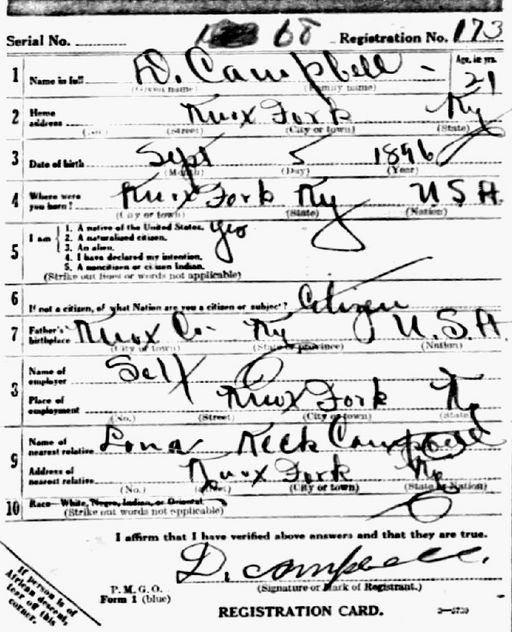 Serial No. 68 Registration No. 173
1 Name in full D. Campbell - Age, in yrs. 21
(Given name) (Family name)
2 Home address Knox Fork Ky
(No.) (Street) (City or town) (State)
3 Date of birth Sept 5 1896
(Month) (Day) (Year)
4 Where were you born? Knox Fork Ky U.S.A.
(City or town) (State) (Nation)
5 I am
1. A native of the United States. yes
2. A naturalized citizen.
3. An alien.
4. I have declared my intention.
5. A noncitizen or citizen Indian.
(Strike out lines or words not applicable)
6 If not a citizen, of what Nation are you a citizen or subject? Citizen
7 Father's birthplace Knox Co- Ky U.S.A
(City or town) (State or province) (Nation)
8 Name of employer Self
Place of employment Knox Fork Ky
(No.) (Street) (City or town) (State)
9 Name of nearest relative Lona Keck Campbell
Address of nearest relative Knox Fork Ky
(No.) (Street) (City or town) (State or Nation)
10 Race—White, Negro, Indian, or Oriental
(Strike out words not applicable)
I affirm that I have verified above answers and that they are true.
D. Campbell.
P. M. G. O.
Form 1 (blue)
(Signature or Mark of Registrant.)
REGISTRATION CARD.
If person is of
African descent,
tear off this
corner.